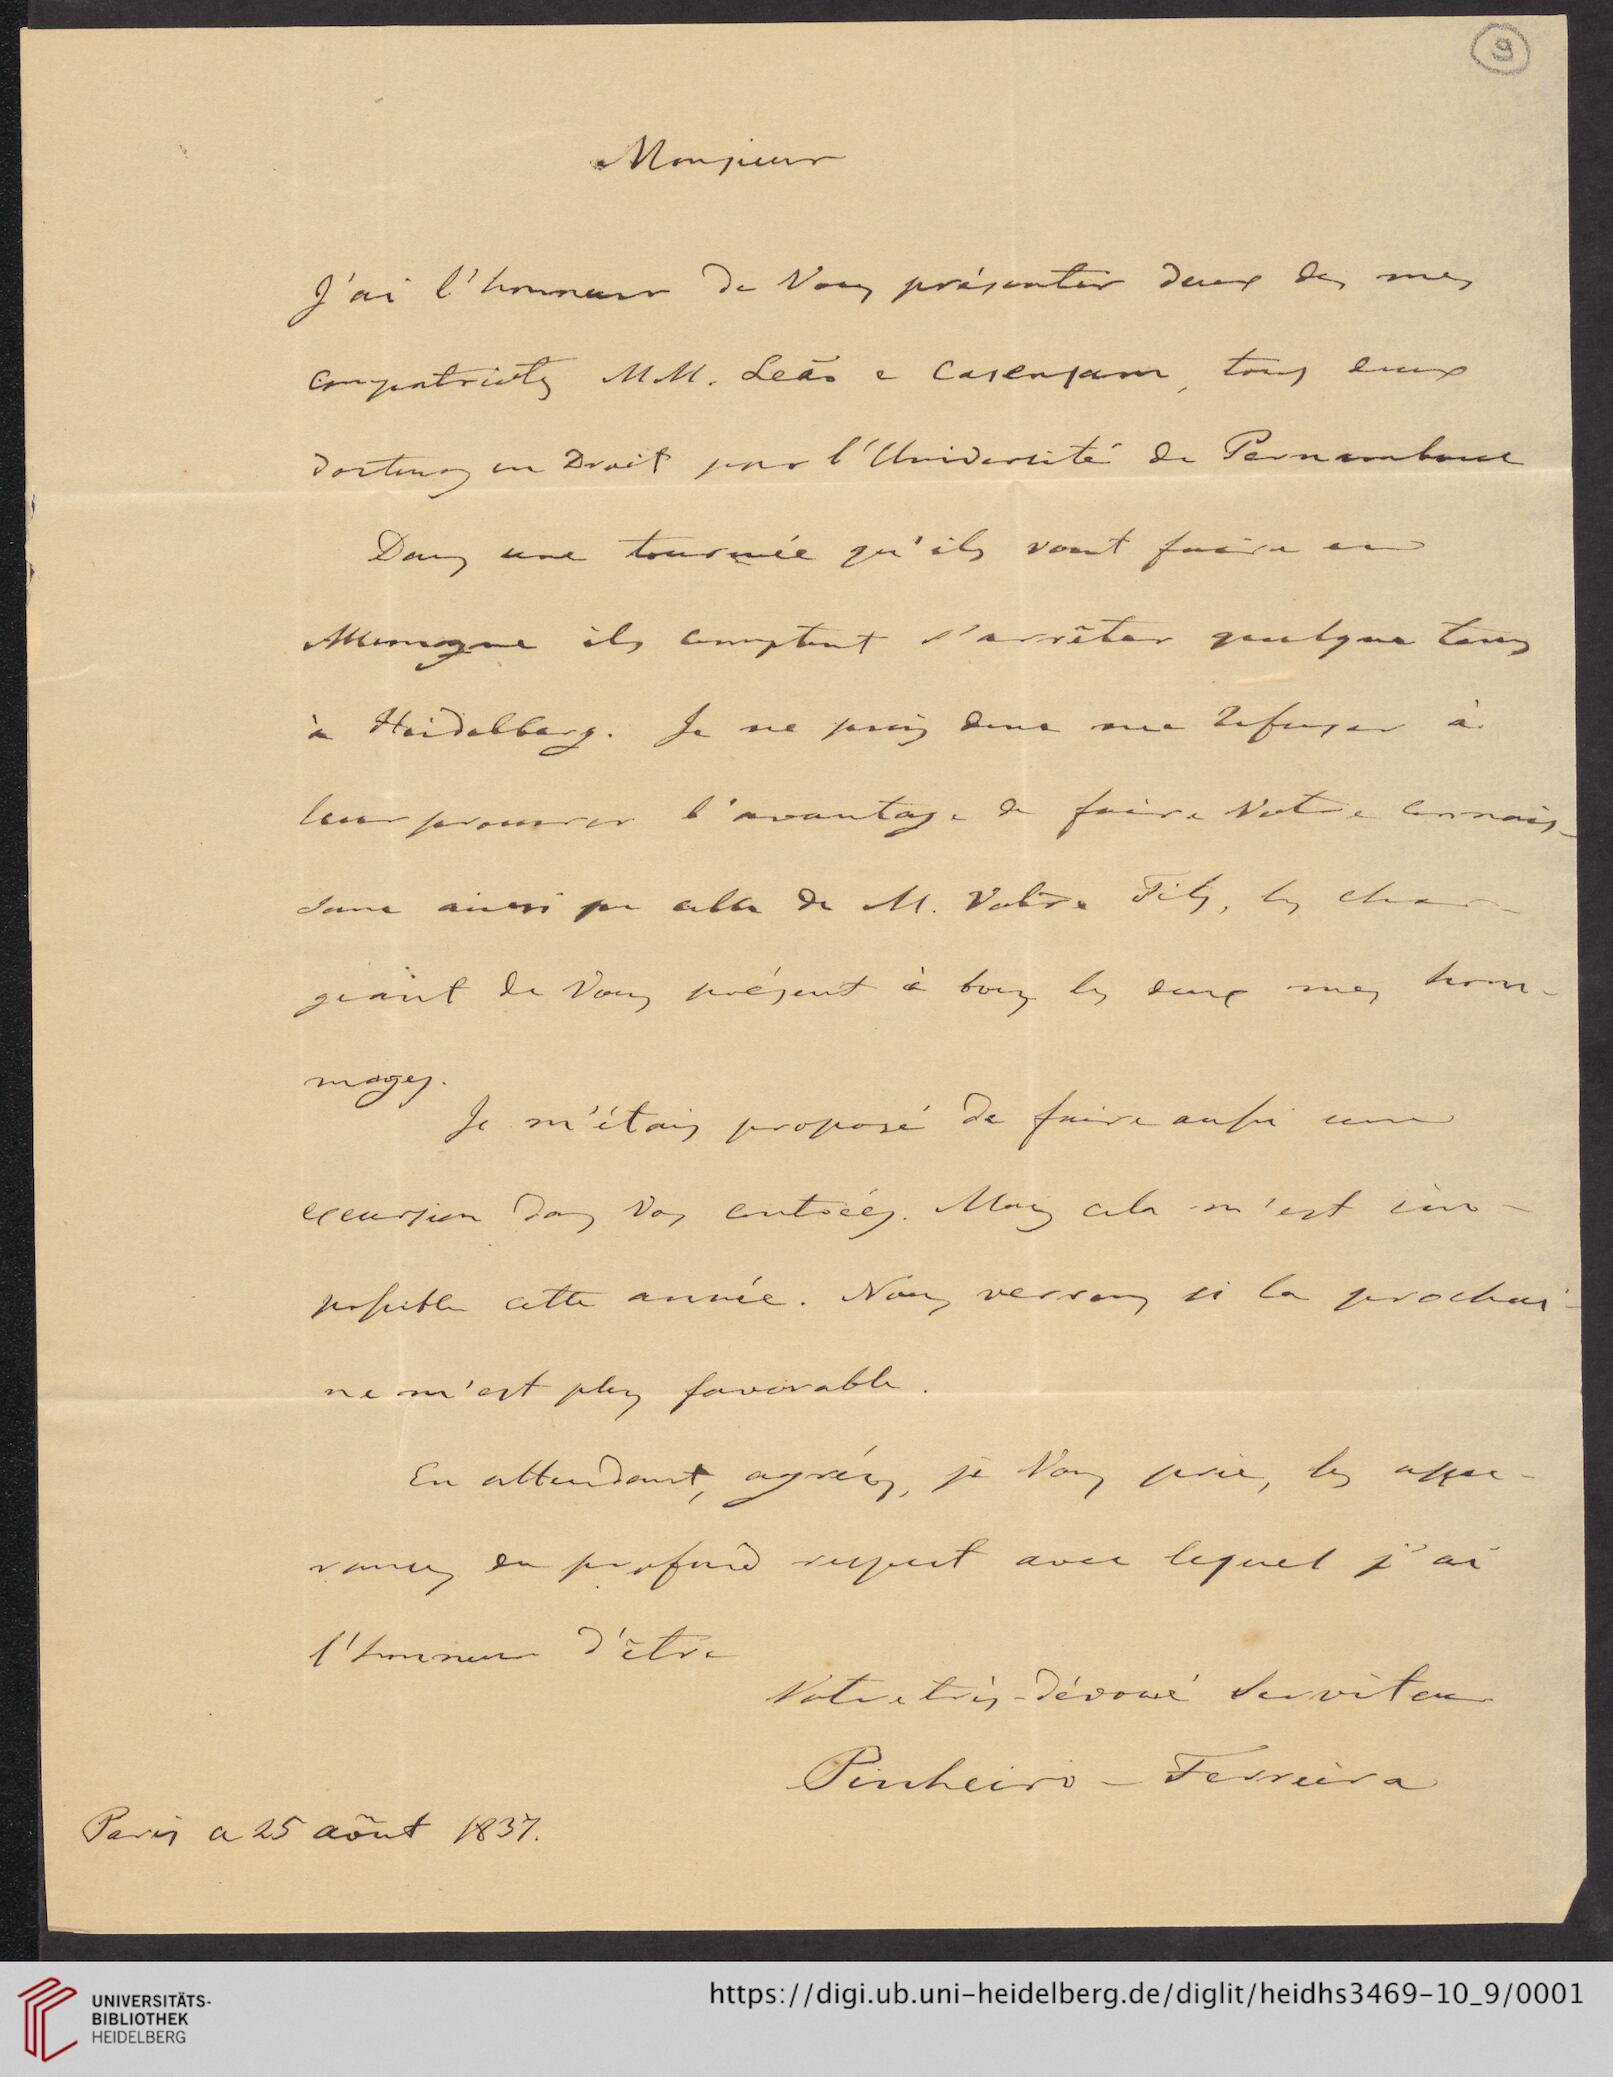 9
Monsieur
J'ai l'honneur de Vous présenter deux de mes
compatriotes MM. Leão e Casensam, tous deux
docteurs en Droit par l'Université de Pernambouc
Dans une tournée qu'ils vont faire en
Allemagne ils comptent s'arrêter quelque tems
à Heidelberg. Je ne puis donc me refuser à
leur procurer l'avantage de faire Votre connais-
sance ainsi que celle de M. Votre Fils, les char-
geant de Vous présent à tous les deux mes hom-
mages.
Je m'étais proposé de faire aussi une
excursion dans Vos contrées. Mais cela m'est im-
possible cette année. Nous verrons si la prochai-
ne m'est plus favorable.
En attendant, agréez, je Vous prie, les assu-
rances du profond respect avec lequel j'ai
l'honneur d'être
Votre très-dévoué Serviteur
Pinheiro-Ferreira
Paris a 25 aôut 1837.
UNIVERSITÄTS-
BIBLIOTHEK
HEIDELBERG
https://digi.ub.uni-heidelberg.de/diglit/heidhs3469-10_9/0001